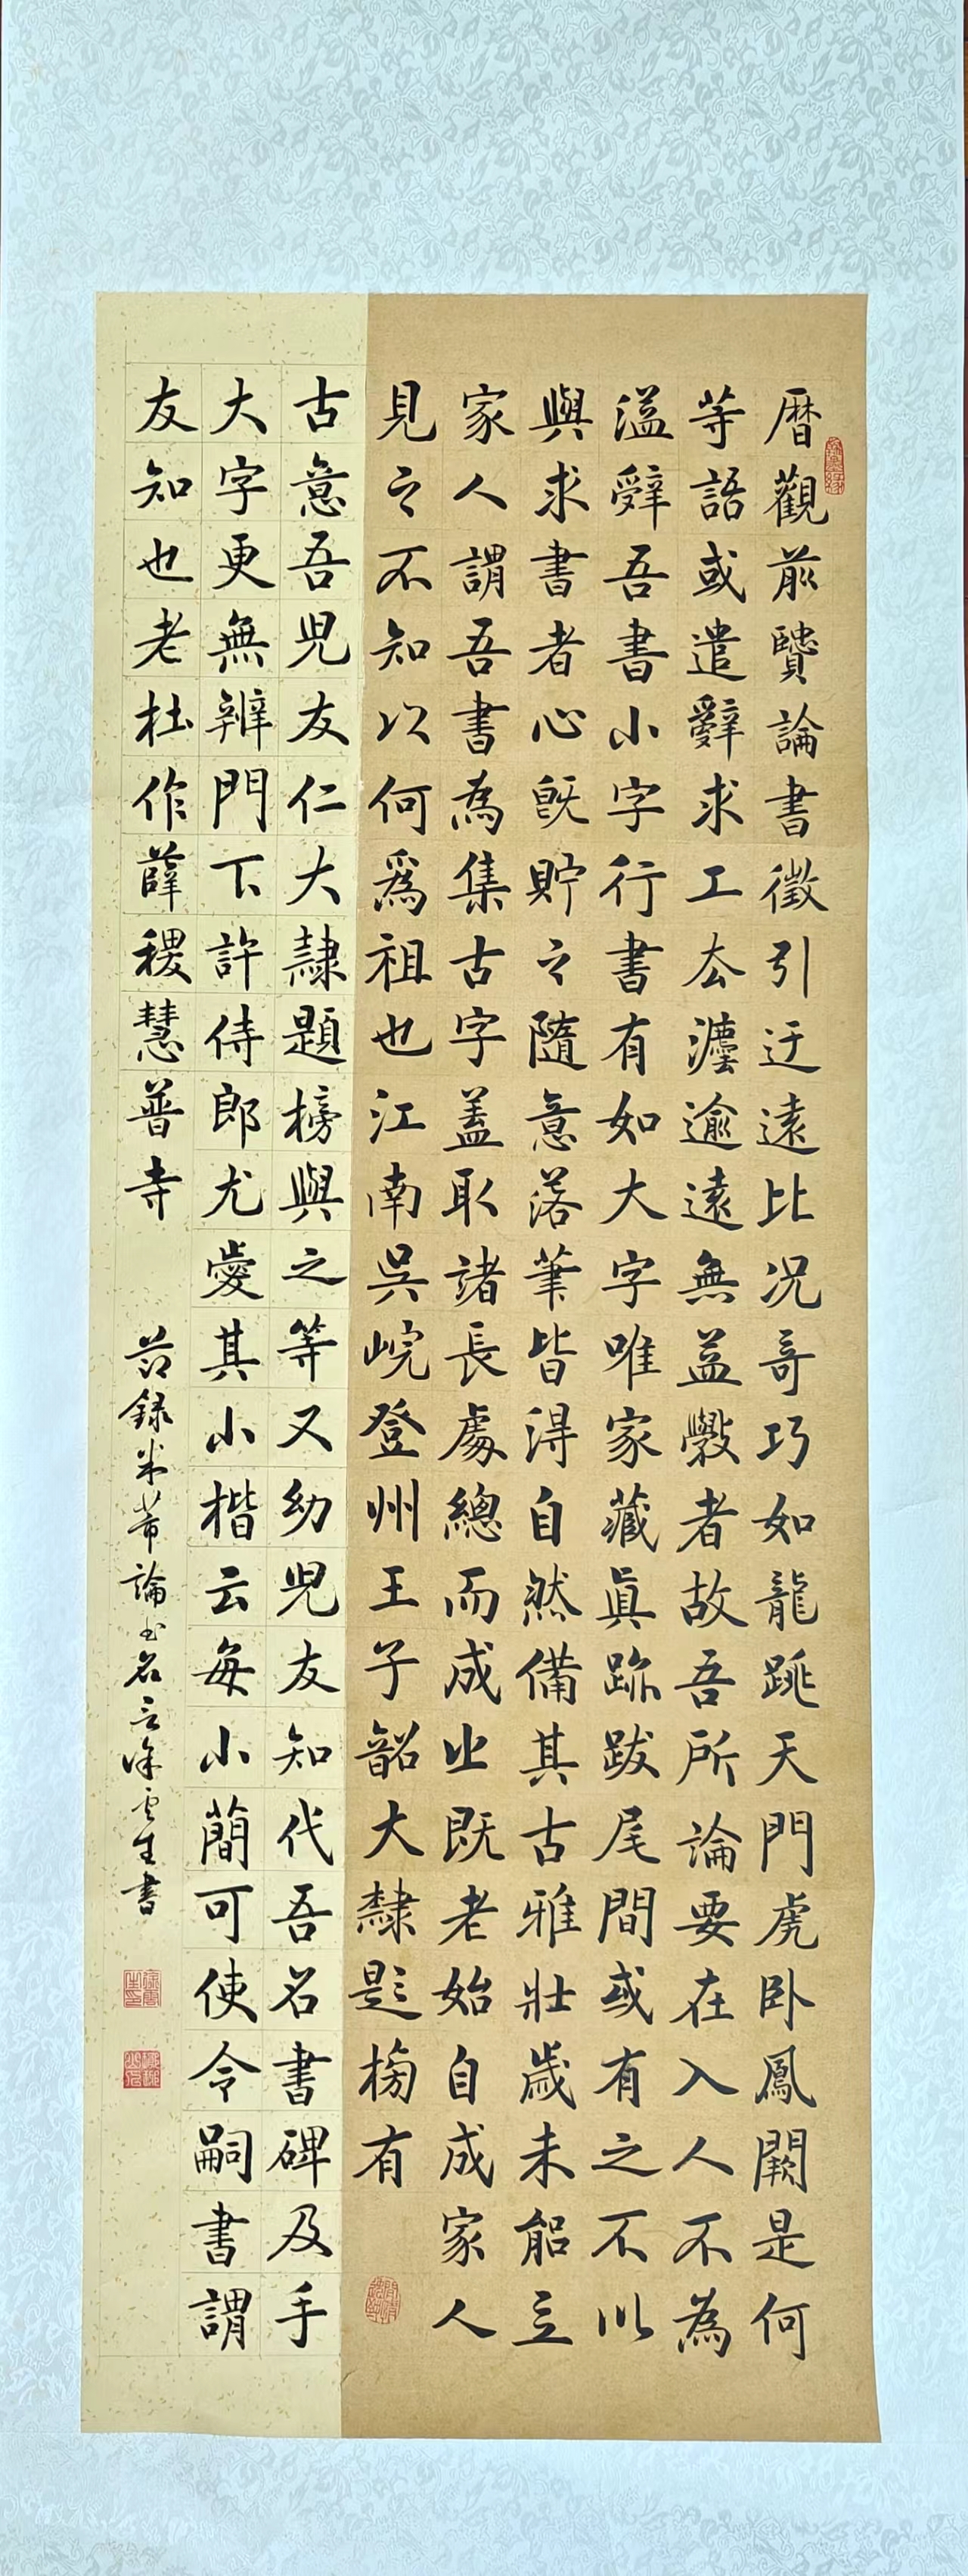 曆觀前賢論書徵引迂遠比况奇巧如龍跳天門虎卧鳳闕是何
等語或遣辭求工去灋逾遠無益學者故吾所論要在入人不為
溢辭吾書小字行書有如大字唯家藏真跡跋尾間或有之不以
與求書者心既貯之隨意落筆皆得自然備其古雅壯歲未能立
家人謂吾書為集古字蓋取諸長處總而成之既老始自成家人
見之不知以何為祖也江南吳皖登州王子韶大隸題榜有
古意吾兒友仁大隸題榜與之等又幼兒友知代吾名書碑及手
大字更無辨門下許侍郎尤愛其小楷云每小簡可使令嗣書謂
友知也老杜作薛稷慧普寺
節録米芾論書名言徐雲生書